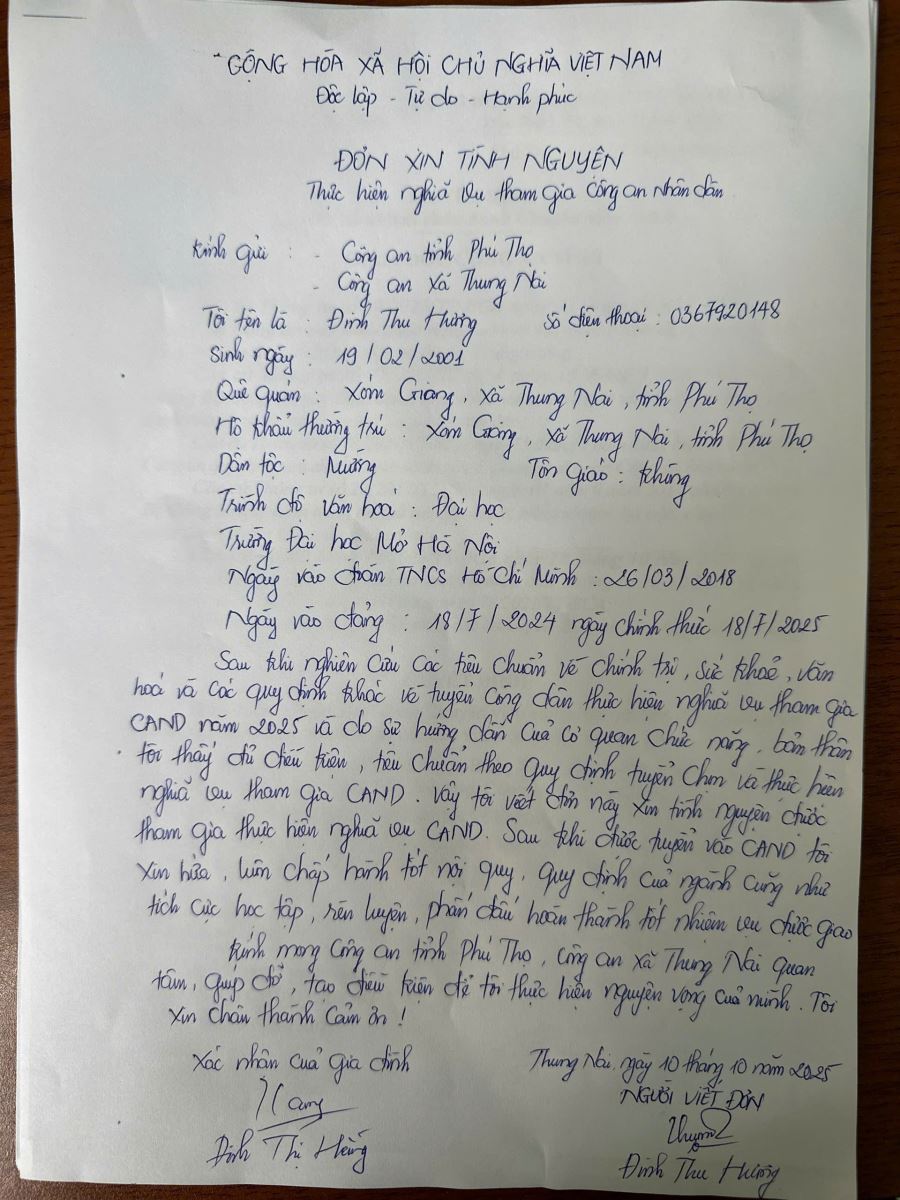 CỘNG HÒA XÃ HỘI CHỦ NGHĨA VIỆT NAM
Độc lập - Tự do - Hạnh phúc
ĐƠN XIN TÌNH NGUYỆN
Thực hiện nghĩa vụ tham gia Công an nhân dân
Kính gửi : - Công an tỉnh Phú Thọ
- Công an xã Thung Nai
Tôi tên là : Đinh Thu Hương Số điện thoại : 0367920148
Sinh ngày : 19/02/2001
Quê quán : Xóm Giang, xã Thung Nai, tỉnh Phú Thọ
Hộ khẩu thường trú : Xóm Giang, xã Thung Nai, tỉnh Phú Thọ
Dân tộc : Mường Tôn giáo : Không
Trình độ văn hoá : Đại học
Trường Đại học Mở Hà Nội
Ngày vào đoàn TNCS Hồ Chí Minh : 26/03/2018
Ngày vào đảng : 18/7/2024 ngày chính thức 18/7/2025
Sau khi nghiên cứu các tiêu chuẩn về chính trị, sức khoẻ, văn
hoá và các quy định khác về tuyển công dân thực hiện nghĩa vụ tham gia
CAND năm 2025 và do sự hướng dẫn của cơ quan chức năng, bản thân
tôi thấy đủ điều kiện, tiêu chuẩn theo quy định tuyển chọn và thực hiện
nghĩa vụ tham gia CAND. Vậy tôi viết đơn này xin tình nguyện được
tham gia thực hiện nghĩa vụ CAND. Sau khi được tuyển vào CAND tôi
xin hứa, luôn chấp hành tốt nội quy, quy định của ngành cũng như
tích cực học tập, rèn luyện, phấn đấu hoàn thành tốt nhiệm vụ được giao
Kính mong Công an tỉnh Phú Thọ, Công an xã Thung Nai quan
tâm, giúp đỡ, tạo điều kiện để tôi thực hiện nguyện vọng của mình. Tôi
xin chân thành cảm ơn !
Xác nhận của gia đình Thung Nai, ngày 10 tháng 10 năm 2025
NGƯỜI VIẾT ĐƠN
Đinh Thị Hằng Đinh Thu Hương